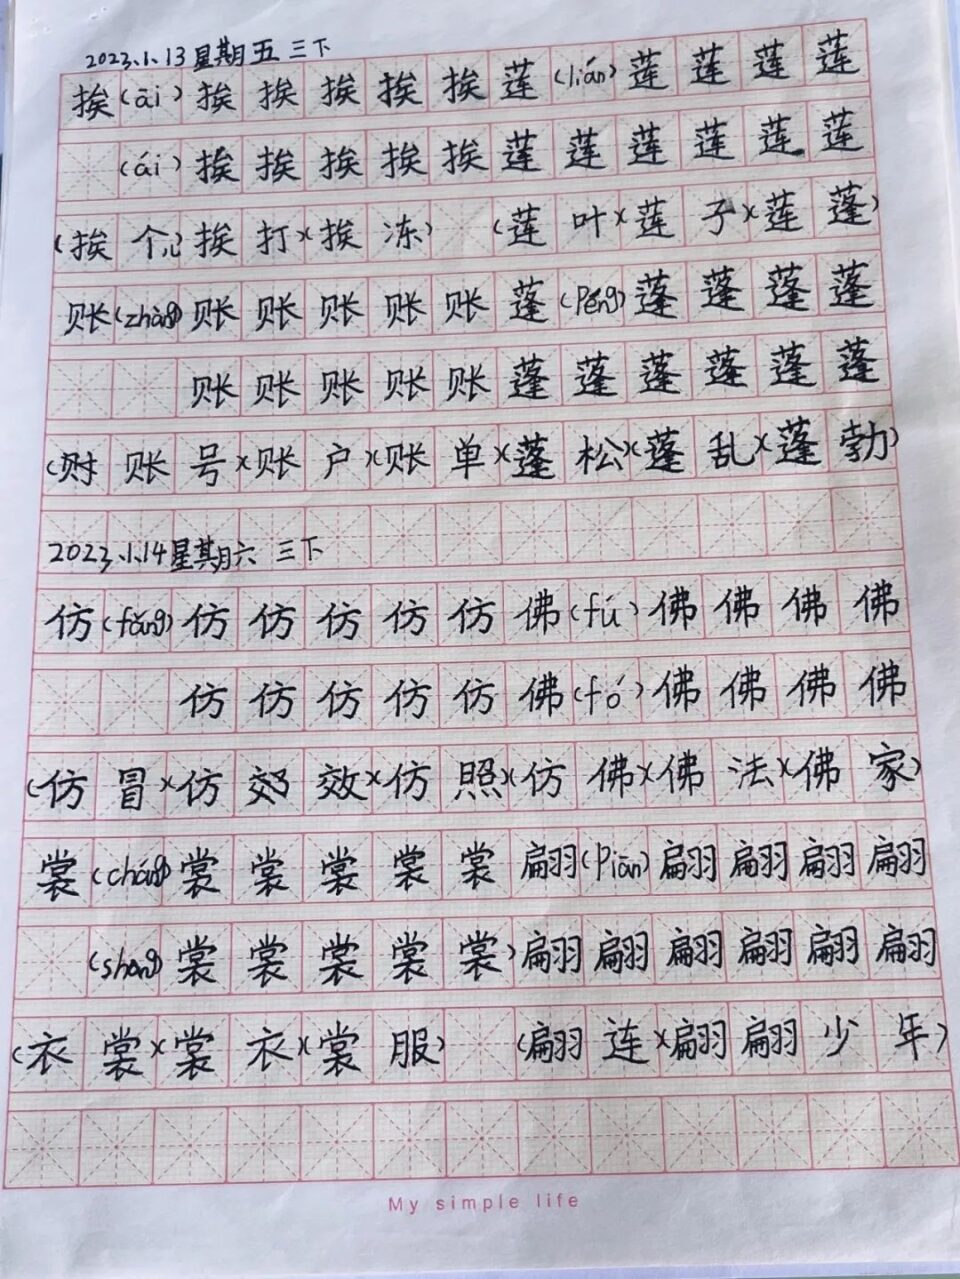 2023.1.13星期五 三下
挨(āi)挨挨挨挨挨莲(lián)莲莲莲莲
(ái)挨挨挨挨挨莲莲莲莲莲莲
(挨个儿)(挨打)(挨冻) (莲叶)(莲子)(莲蓬)
账(zhàng)账账账账账蓬(péng)蓬蓬蓬蓬
账账账账账蓬蓬蓬蓬蓬蓬
(财账号)(账户)(账单)(蓬松)(蓬乱)(蓬勃)
2023.1.14星期六 三下
仿(fǎng)仿仿仿仿仿佛(fú)佛佛佛佛
仿仿仿仿仿佛(fó)佛佛佛佛
(仿冒)(仿效)(仿照)(仿佛)(佛法)(佛家)
裳(cháng)裳裳裳裳裳翩(piān)翩翩翩翩
(shang)裳裳裳裳裳)翩翩翩翩翩翩
(衣裳)(裳衣)(裳服) (翩连)(翩翩少年)
My simple life